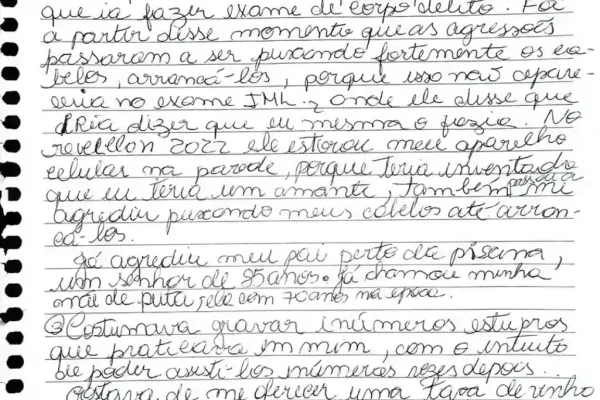 que ia fazer exame de corpo delito. Foi
a partir disse momento que as agressões
passaram a ser puxando fortemente os ca-
belos, arrancá-los, porque isso não apare-
ceria no exame IML, onde ele disse que
iRia dizer que eu mesma o fazia. No
reveillon 2022 ele estorou meu aparelho
celular na parede, porque teria inventado
que eu teria um amante, também me
agrediu puxando meus cabelos até arran-
cá-los.
já agrediu meu pai perto da piscina,
um senhor de 85 anos. já chamou minha
mãe de puta, ela com 70 anos na época.
③ Costumava gravar inúmeros estupros
que praticava em mim, com o intuito
de poder assisti-los inúmeras vezes depois.
Gostava de me oferecer uma taça de vinho